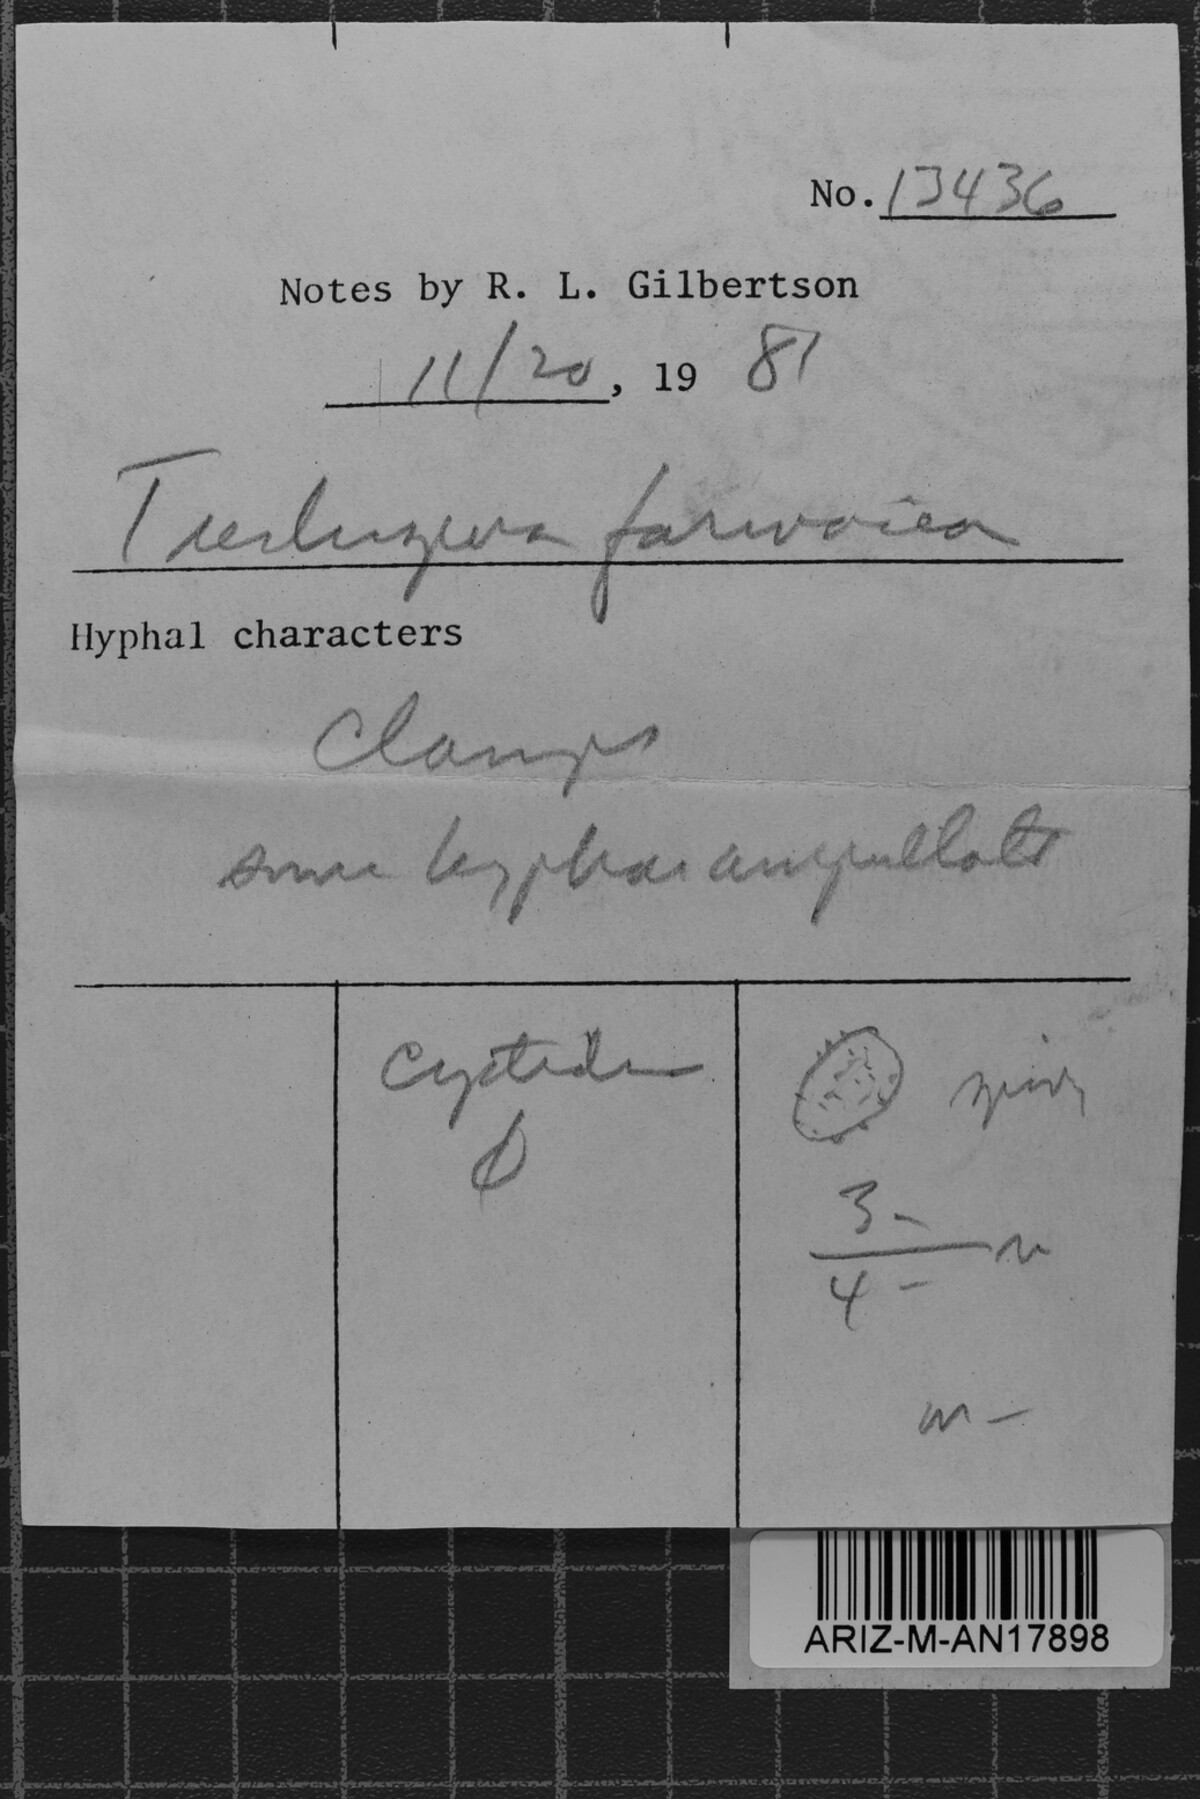 No. 13436
Notes by R. L. Gilbertson
11/20, 19 81
Trechispora farinacea
Hyphal characters
Clamps
some hyphae ampullate
cystidia
spiny
3-
4-
m-
ARIZ-M-AN17898